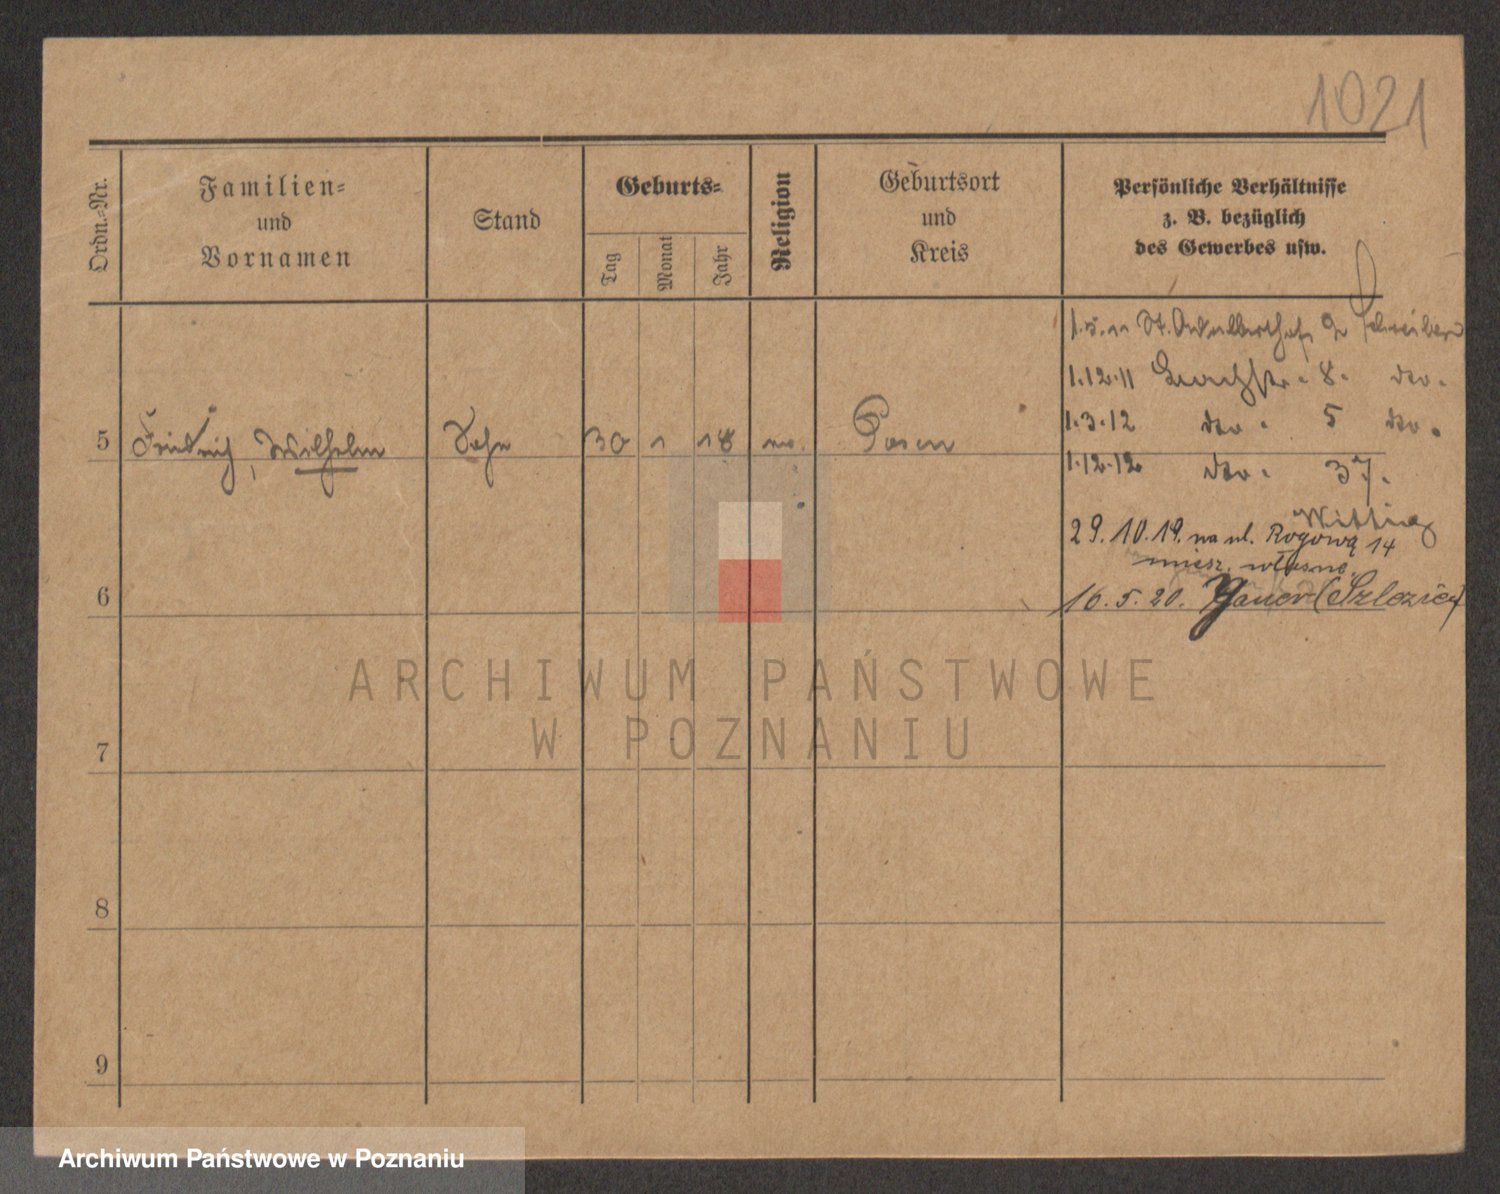 1021
Ordn.=Nr.
Familien=
und
Vornamen
Stand
Geburts=
Tag
Monat
Jahr
Religion
Geburtsort
und
Kreis
Persönliche Verhältnisse
z. B. bezüglich
des Gewerbes usw.
1.5.11 St. Adalberthof 2
1.12.11 8. dto.
1.3.12 dto. 5 dto.
5 Friedrich, Wilhelm Sohn 30 1 18 Posen
1.12.12 dto. 37.
29.10.19. na ul. Rogową 14
miesz. własne.
6
16.5.20.
7
8
9
ARCHIWUM PAŃSTWOWE
W POZNANIU
Archiwum Państwowe w Poznaniu